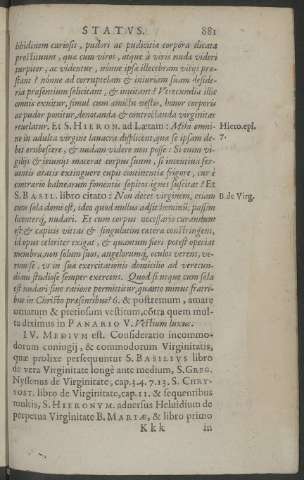 STATVS. 881
libidinum curiosis, pudori ac pudicitiæ corpora dicata
prostituunt, quæ cum viros, atque à viris nudæ videri
turpiter, ac videntur, nonne ipsæ illecebram vitijs præ-
stant? nonne ad corruptelam & iniuriam suam deside-
ria præsentium solicitant, & inuitant? Verecundia illic
omnis exuitur, simul cum amictu vestis, honor corporis
ac pudor ponitur, denotanda & contrectanda virginitas
reuelatur. Et S. HIERON. ad Lætam: Mihi omni- Hiero.epl.
no in adulta virgine lauacra displicent, quæ se ipsam de- 7.
bet erubescere, & nudam videre non posse: Si enim vi-
gilijs & ieiunijs macerat corpus suum, si incentiua feru-
entis ætatis extinguere cupit continentiæ frigore, cur è
contrario balnearum fomentis sopitos ignes suscitat? Et
S. BASIL. libro citato: Non decet virginem, etiam B. de Virg.
cum sola domi est, ideo quod nullus adsit hominū, passim
licenterq; nudari. Et cum corpus necessariò curandum
est & capitis vitta & singulum cætera constringens,
id opus celeriter exigat, & quantum fieri potest operiat
membra, non solum suos, angelorumq; oculos verens, ve-
rum se, vt in sua exercitationis domicilio ad verecun-
diæ studium semper exercens. Quod si neque cum sola
est nudari sine ratione permittitur, quanto minus fratri-
bus in Christo præsentibus? 6. & postremum, amare
ornatum & pretiosum vestitum, cōtra quem mul-
ta diximus in PANARIO V. Vestium luxus.
IV. MEDIVM est. Consideratio incommo-
dorum coniugij, & commodorum Virginitatis,
quæ prolixè persequuntur S. BASILIVS libro
de vera Virginitate longè ante medium, S. GREG.
Nyssenus de Virginitate, cap.3.4.7.13. S. CHRY-
SOST. libro de Virginitate, cap. 11. & sequentibus
multis, S. HIERONYM. aduersus Heluidium de
perpetua Virginitate B. MARIÆ, & libro primo
Kkk in